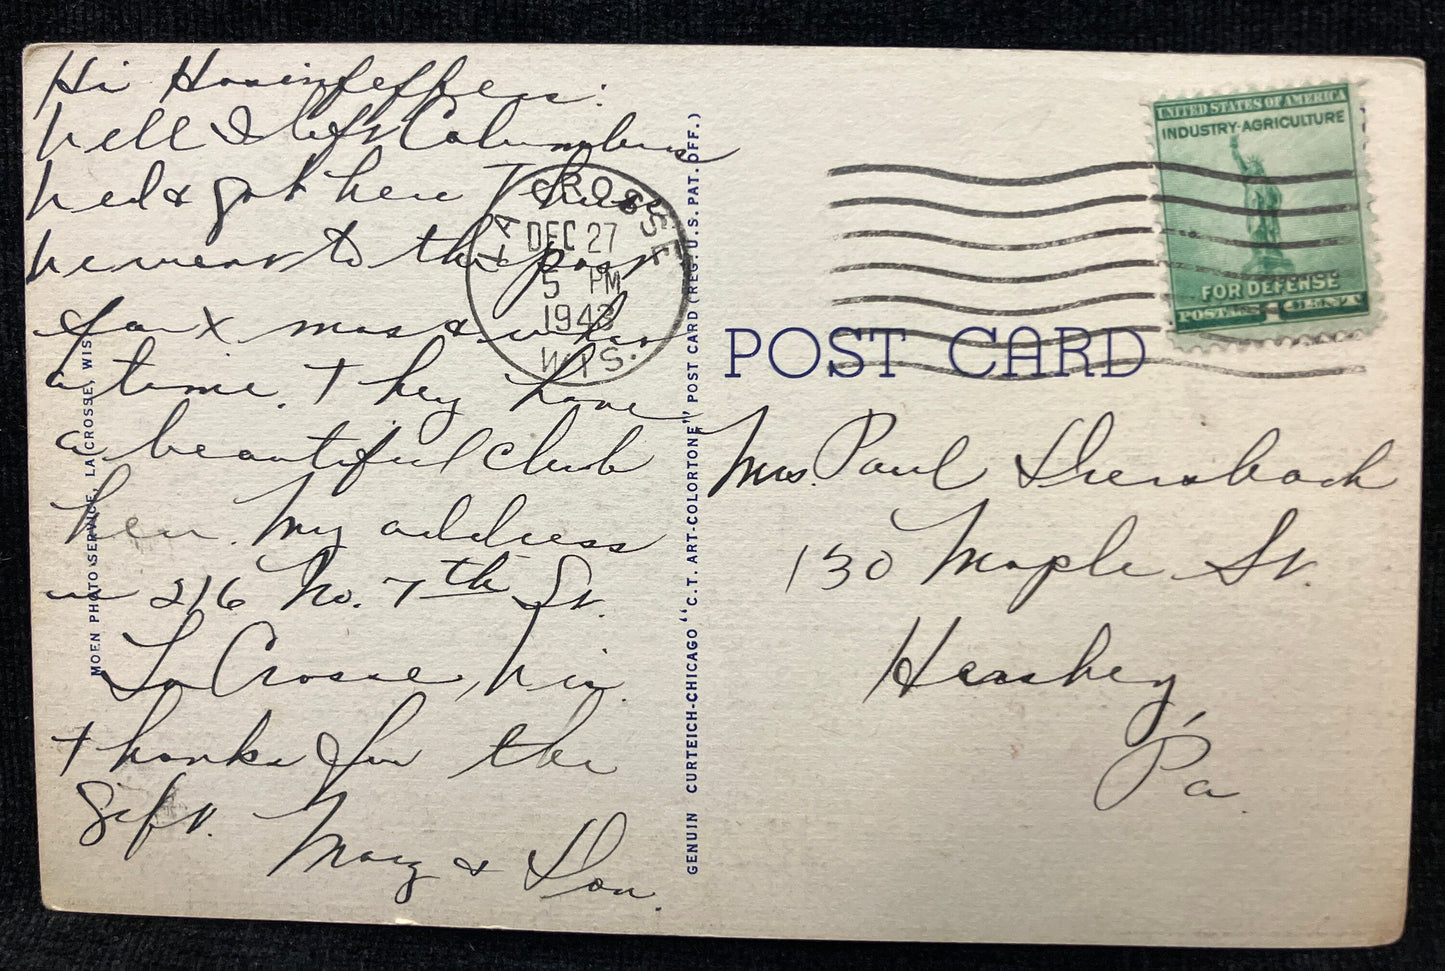 Hi
Well I left Columbus
Wed & got here Thurs
We went to the post
for X mas & what
a time. They have
a beautiful club
here. My address
is 216 No. 7th St.
La Crosse, Wis.
Thanks for the
Gift.
Mary & Don.
LA CROSSE
DEC 27
5 PM
1943
WIS.
MOEN PHOTO SERVICE, LA CROSSE, WIS.
GENUIN CURTEICH-CHICAGO "C.T. ART-COLORTONE" POST CARD (REG. U.S. PAT. OFF.)
UNITED STATES OF AMERICA
INDUSTRY-AGRICULTURE
FOR DEFENSE
POSTAGE 1 CENT
POST CARD
Mrs. Paul
130 Maple St.
Hershey,
Pa.